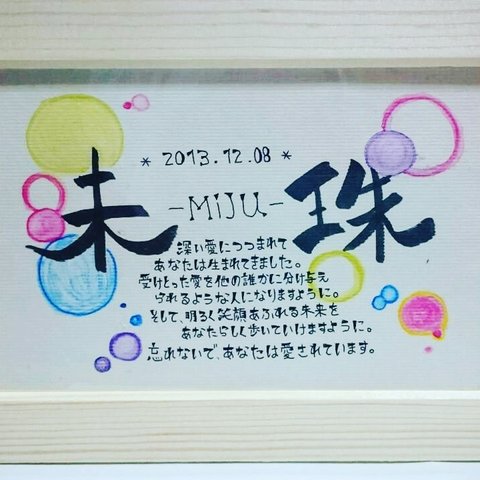 * 2013.12.08 *
未珠
-MiJU-
深い愛につつまれて
あなたは生まれてきました。
受けとった愛を他の誰かに分け与え
られるような人になりますように。
そして、明るく笑顔あふれる未来を
あなたらしく歩いていけますように。
忘れないで、あなたは愛されています。